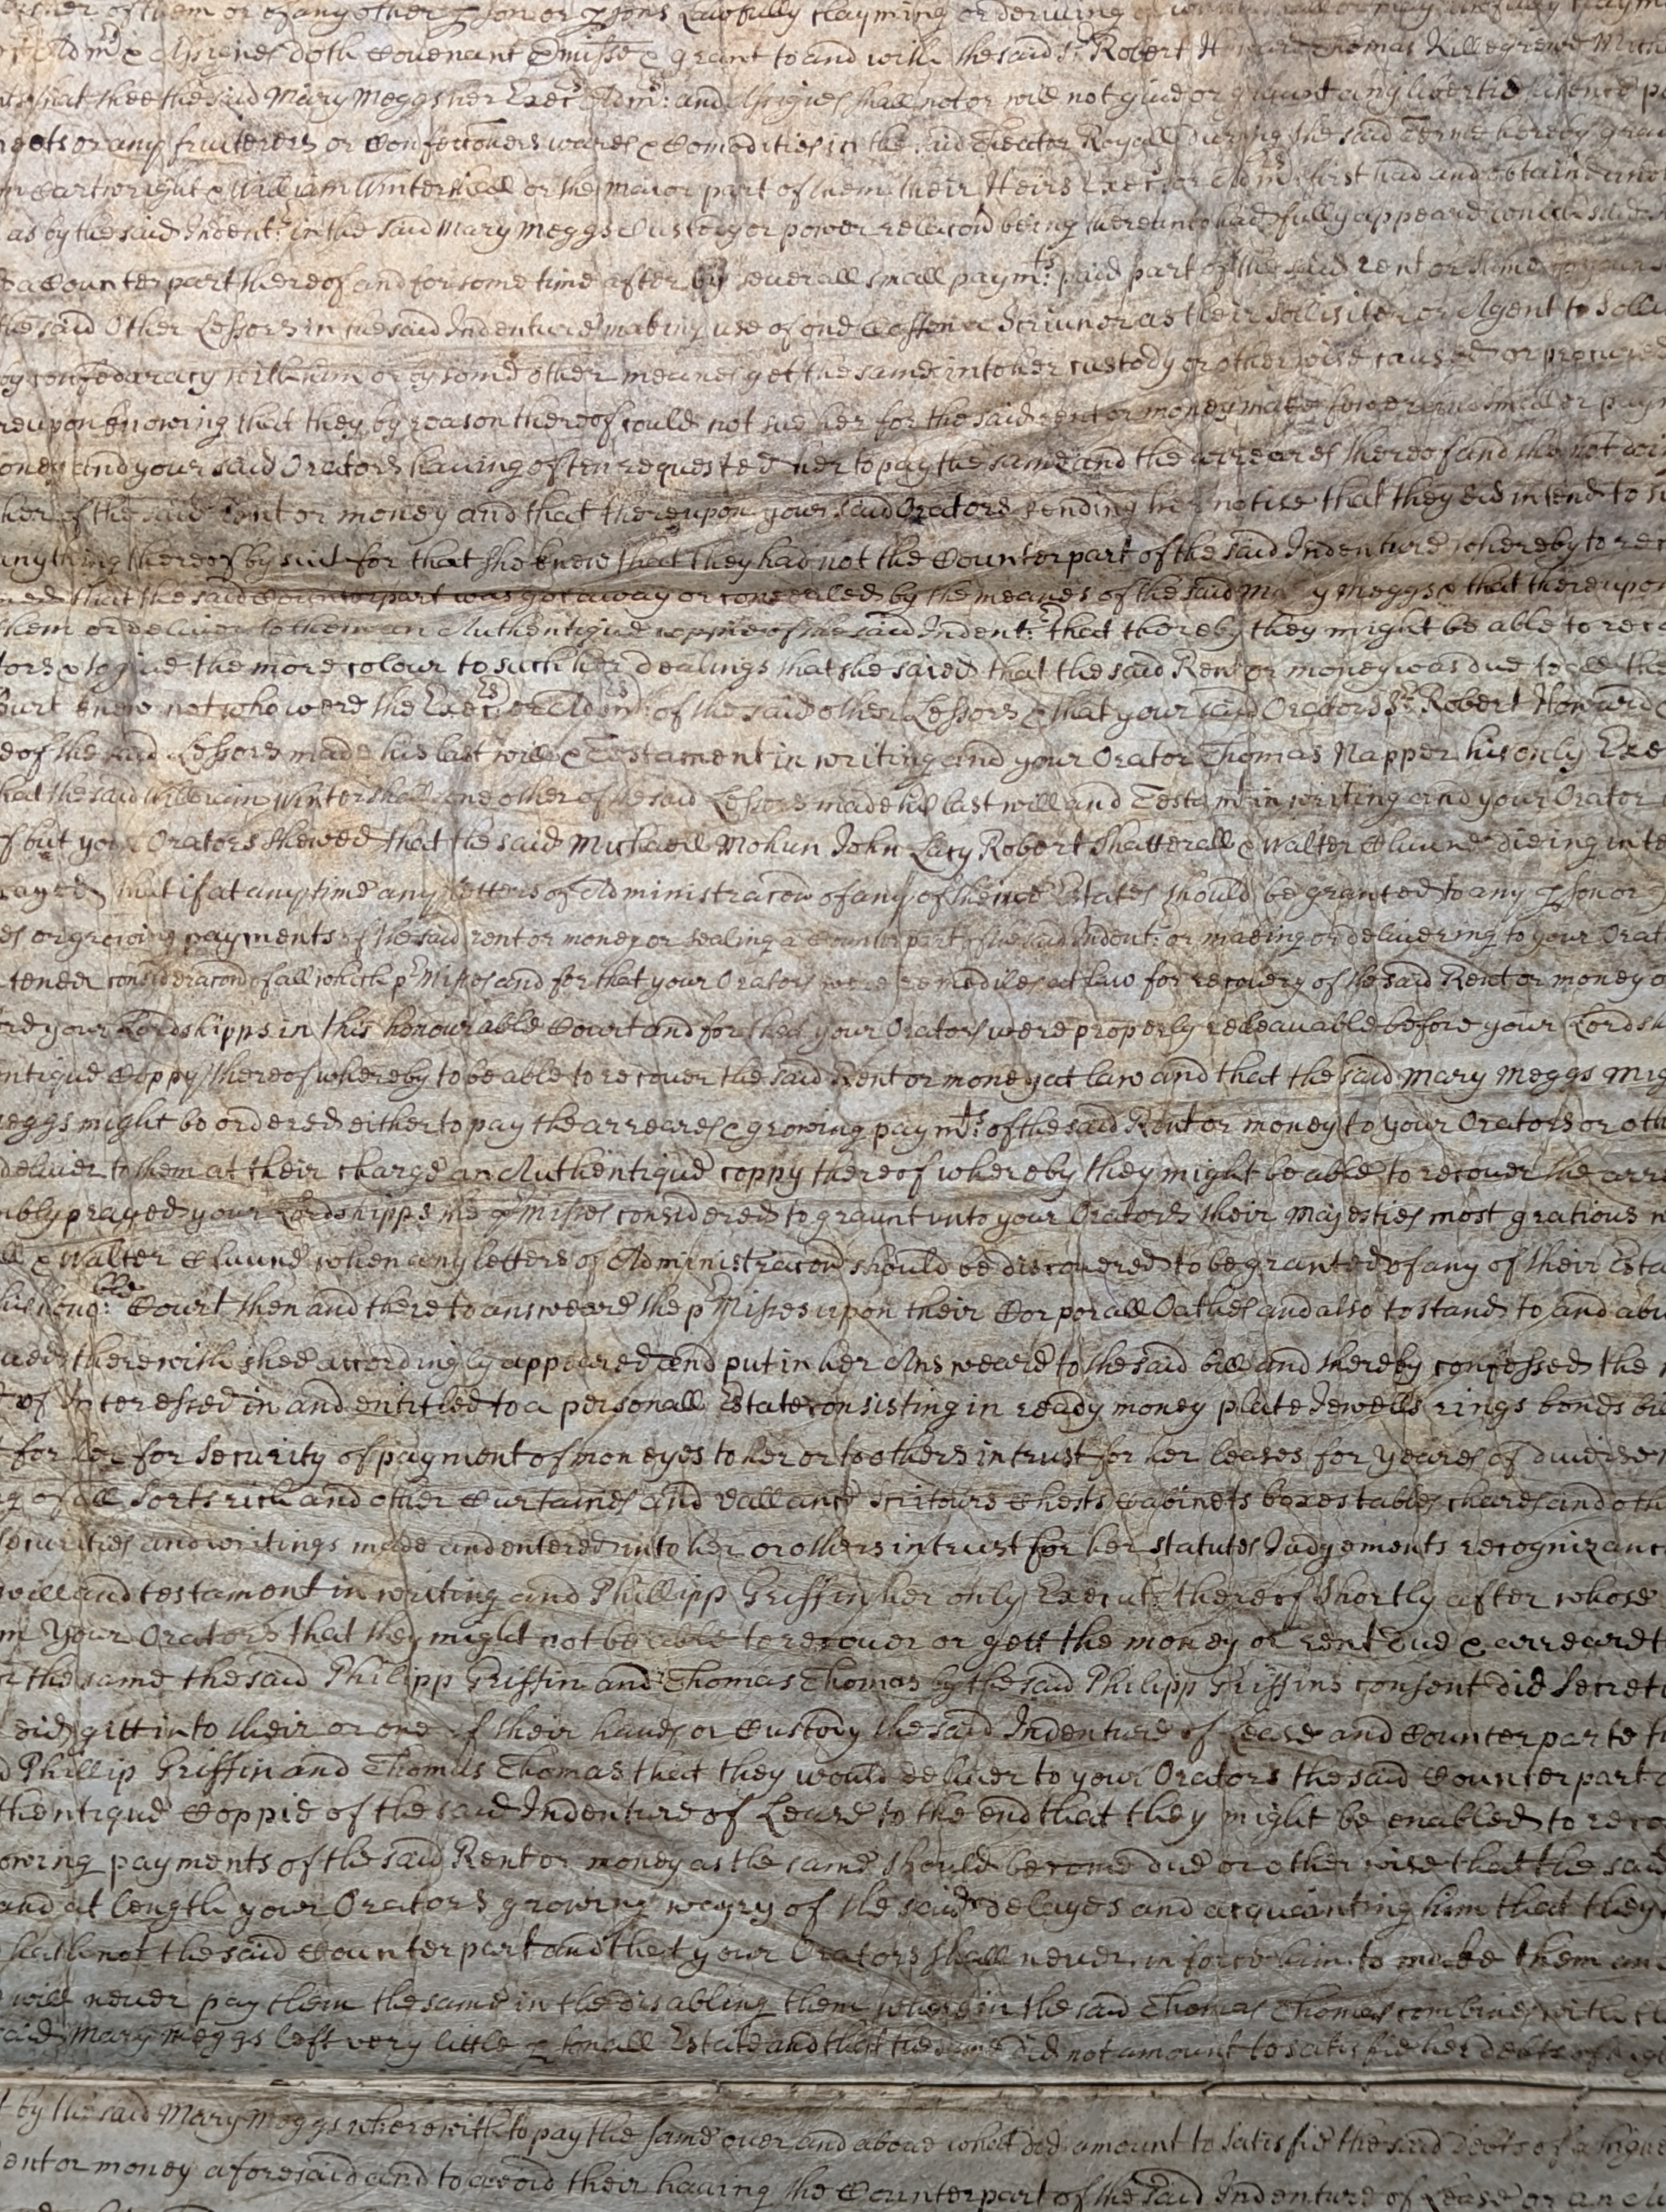 of them or of any other ꝑson or ꝑsons Lawfully clayming or deriving
Adm.rs & Assignes doth Covenant ꝑmisse & grant to and with the said S.r Robert Howard Thomas Killegrew
that shee the said Mary Meggs her Exec.rs Adm.rs: and Assignes shall not or will not give or graunt any libertie lisence
or any fruiterers or Confectoners wares & Comodities in the said Theater Royall during the said Terme hereby
Cartwright & William Wintershall or the major part of them their Heirs Exec.rs or Adm.rs first had and obtained
as by the said Indent.r in the said Mary Meggs Custody or power relacon being thereunto had fully appeare which said
a Counterpart thereof and for some time after by severall small paym.ts paid part of the said rent or
the said Other Lessors in the said Indenture making use of one a Scrivnor as their Sollisiter or Agent to
by confedaracy with him or by some other meanes get the same into her custody or otherwise caused or procured
knowing that they by reason thereof could not sue her for the said rent or money make fewer and smaller
and your said Orators having often requested her to pay the same and the arreares thereof and she not
her of the said Rent or money and that thereupon your said Orators sending her notise that they did intend to
anything thereof by suit for that she knew that they had not the Counterpart of the said Indenture whereby to
that the said Counterpart was got away or concealed by the meanes of the said Mary Meggs & that thereupon
them or deliver to them an Authentique coppie of the said Indent.r that thereby they might be able to
& to give the more colour to such her dealings that she saied that the said Rent or money was due to all the
knew not who were the Exec.rs or Adm.rs of the said other Lessors & that your said Orators S.r Robert Howard
of the said Lessors made his last will & Testament in writing and your Orator Thomas Napper his only
that the said William Wintershall one other of the said Lessors made his last will and Testam.t in writing and your Orator
but your Orators shewed that the said Michaell Mohun John Lacy Robert Shatterall & Walter Clunne dieing
that if at any time any Letters of Administracon of any of theire Estates should be granted to any ꝑson or
or growing payments of the said rent or money or sealing a Counterpart of the said Indent.r or makeing or delivering to your
tender consideracon of all which p.rmisses and for that your Orators were remediles at law for recovery of the said Rent or money
your Lordshipps in this honourable Court and for that your Orators were properly releavable before your
Coppy thereof whereby to be able to recover the said Rent or money at law and that the said Mary Meggs
might be ordered either to pay the arreares & growing paym.ts of the said Rent or money to your Orators or
deliver to them at their charge an Authentique coppy thereof whereby they might be able to recover the
prayed your Lordshipps the p.rmisses considered to graunt unto your Orators their Majesties most gratious
& Walter Cluune when any letters of Administracon should be discovered to be granted of any of their
hono:ble Court then and there to answeare the p.rmisses upon their Corporall Oathes and also to stand to and
therewith shee accordingly appeared and put in her Answeare to the said bill and thereby confessed the
of Interessed in and entitled to a personall Estate consisting in ready money plate Jewells rings bonds
for her for Security of payment of moneyes to her or to others in trust for her leases for yeares of
of all sorts rich and other Curtaines and vallance scritoire Chests Cabinets boxes tables chares and
securities and writings made and entered into her or others in trust for her statutes Judgements
will and testament in writing and Phillipp Griffin her only Execut.r thereof shortly after whose
your Orators that they might not be able to recover or gett the money or rent due &
the same the said Philipp Griffin and Thomas Thomas by the said Philipp Griffins consent did
did gitt into their or one of their hands or Custody the said Indenture of Lease and Counterparte
Phillip Griffin and Thomas Thomas that they would deliver to your Orators the said Counterpart
Coppie of the said Indenture of Lease to the end that they might be enabled to
payments of the said Rent or money as the same should become due or otherwise that the said
and at length your Orators growing weary of the said delayes and acquainting him that they
hath not the said Counterpart and that your Orators shall never inforce him to make them
will never pay them the same in the disabling them wherein the said Thomas Thomas combines with
Mary Meggs left very little ꝑsonall Estate and that the same did not amount to satisfie her debts of
by the said Mary Meggs wherewith to pay the same over and above what did amount to satisfie the said Debts of
or money aforesaid and to avoid their having the Counterpart of the said Indenture of Lease or